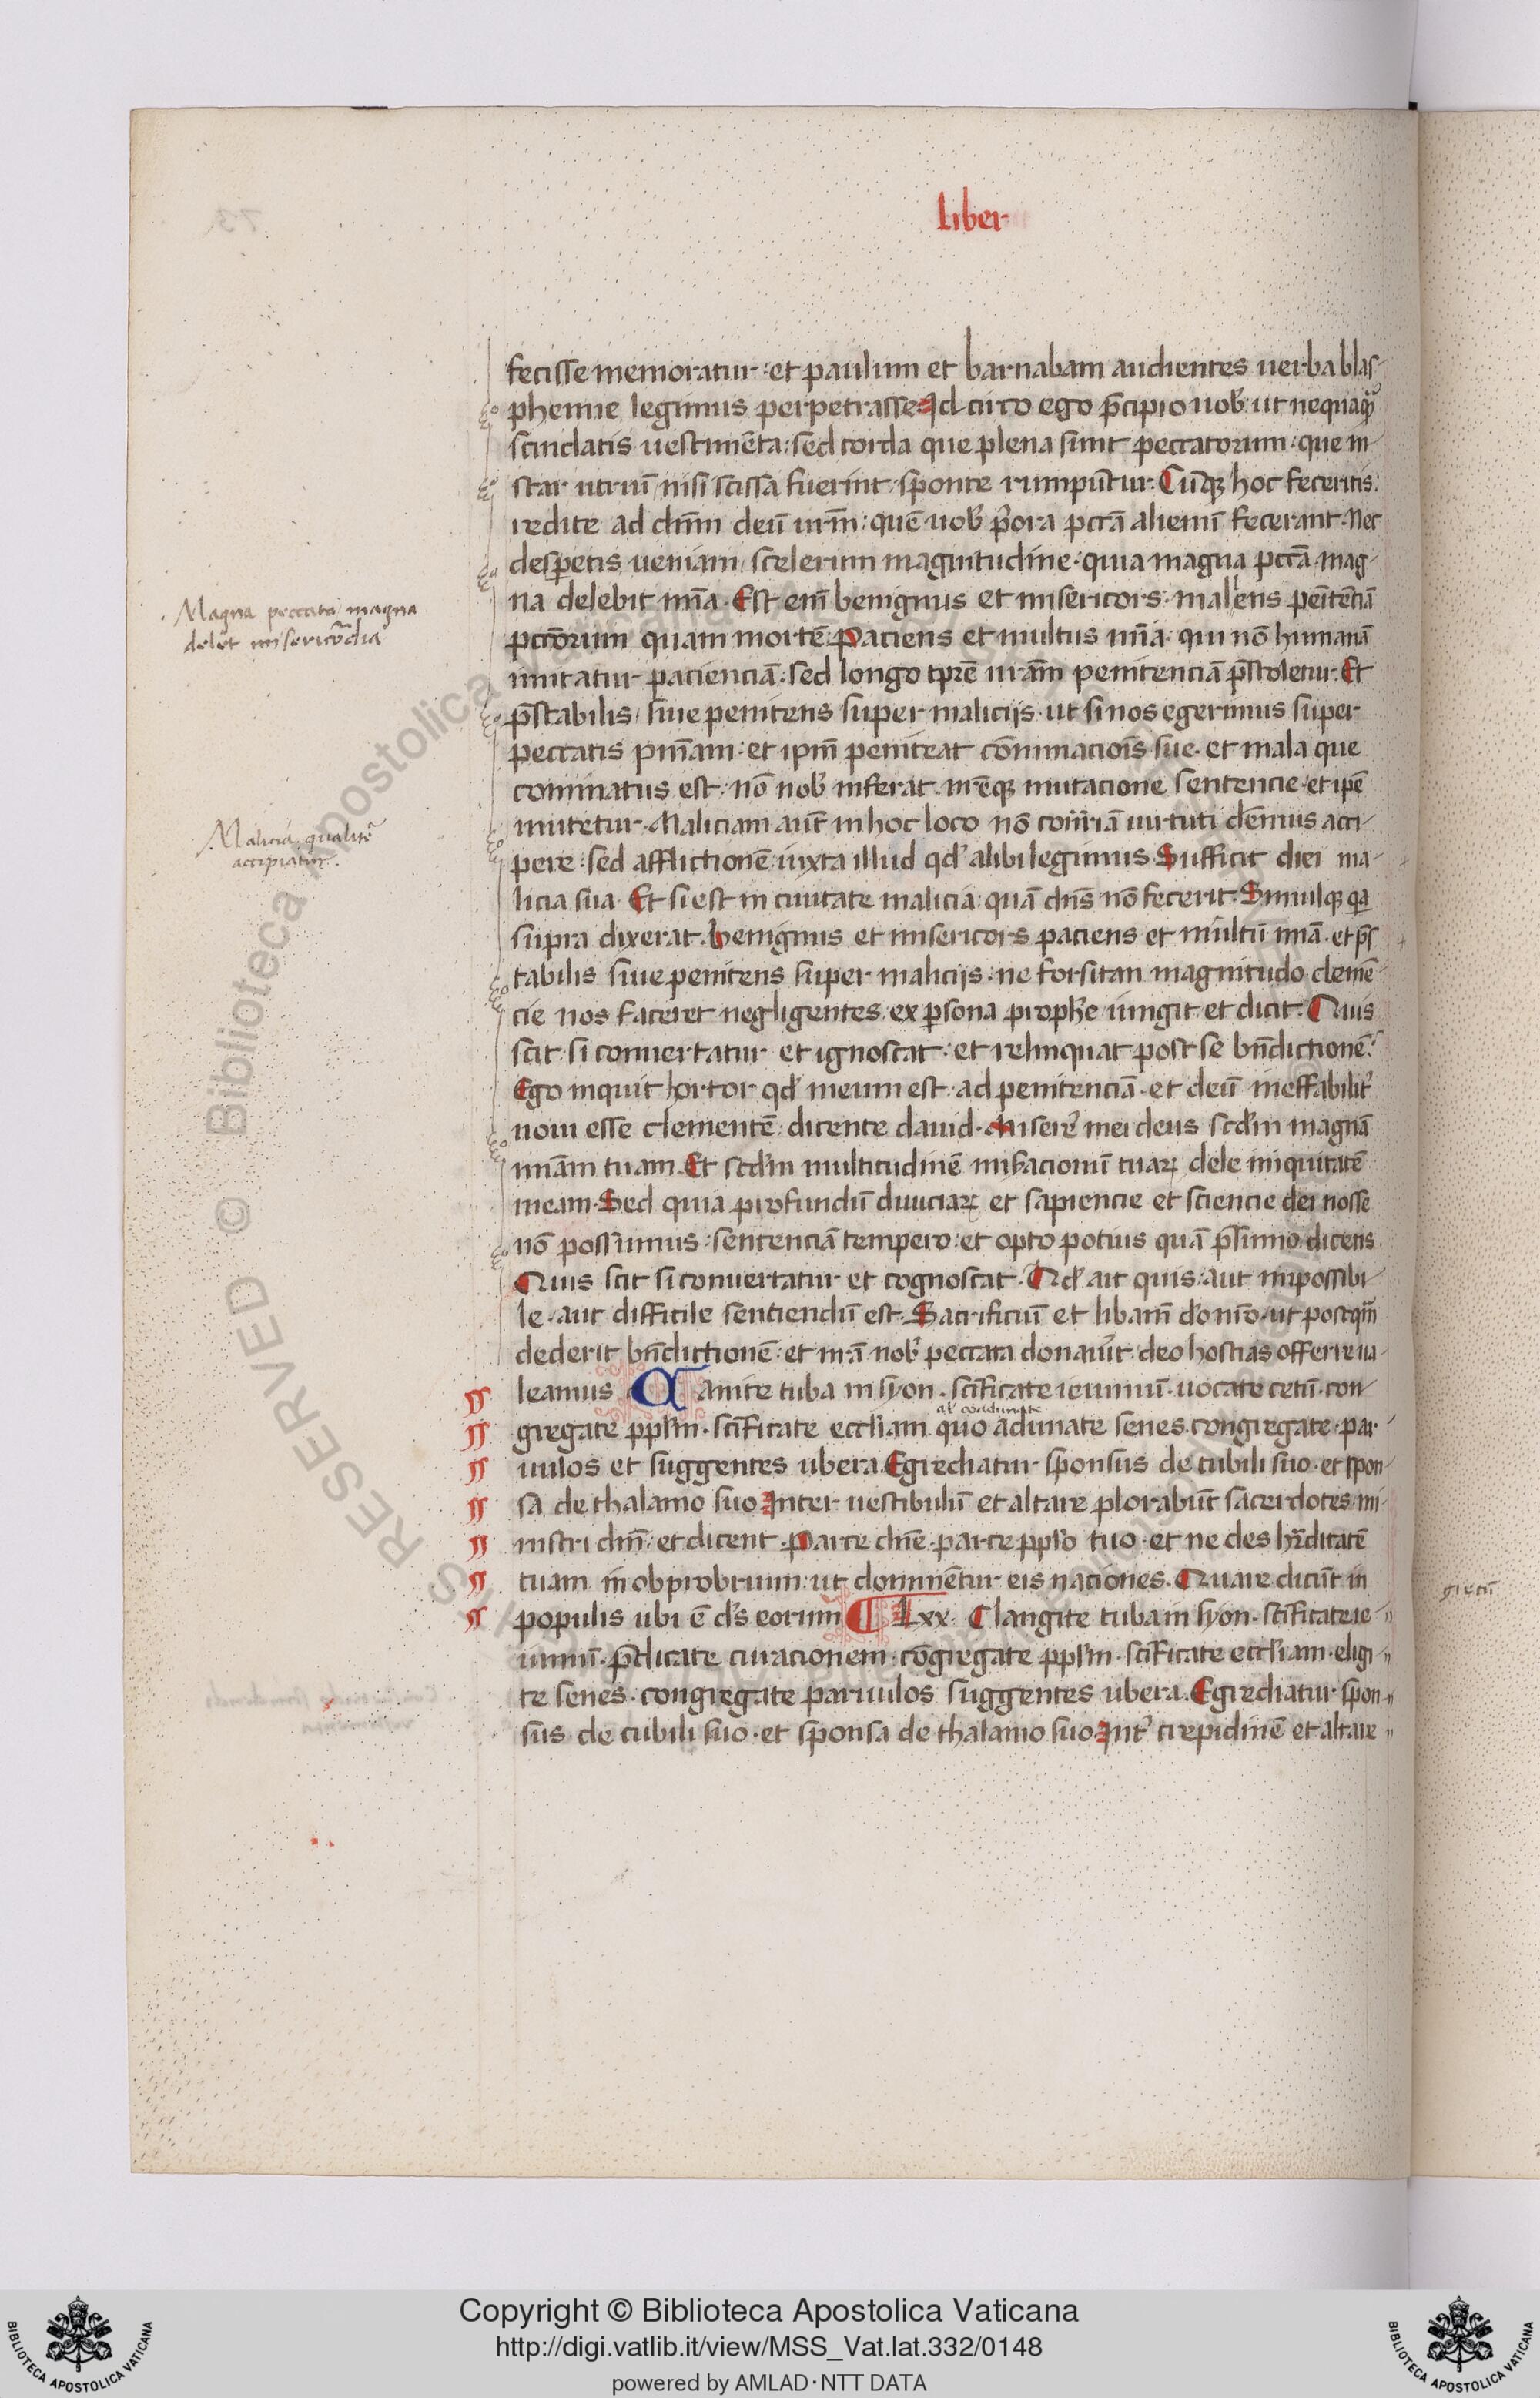 liber
fecisse memoratur: et paulum et barnabam audientes uerba blas-
phemie legimus perpetrasse. Id circo ego p̄cipio uob̄: ut nequaqȝ
scindatis uestimēta: sed corda que plena sunt peccatorum: que in-
star utriū nisi scissa fuerint: sponte rumpūtur. Cūqȝ hoc feceritis:
redite ad dn̄m deū ur̄m: quē uob̄ p̄ora pctā alienū fecerant. Nec
desperetis ueniam scelerum magnitudine: quia magna pctā mag-
na delebit mīa. Est eni benignus et misericors: malens penitētiā
pctōrum quam mortē. Paciens et multus mīa: qui nō humanā
imitatur pacienciā: sed longo tpr̄e ur̄am penitenciā p̄stoletur. Et
p̄stabilis siue penitens super malicijs. ut si nos egerimus super
peccatis pnīam: et ipm̄ peniteat cōminacioīs sue. et mala que
cominatus est: nō nob̄ inferat. nr̄eqȝ mutacione sentencie et ipē
mutetur. Maliciam aut̄ in hoc loco nō contr̄iā uirtuti dem̄us acci-
pere: sed afflictionē iuxta illud qd̄ alibi legimus. Sufficit diei ma-
licia sua. Et si est in ciuitate malicia: quā dn̄s nō fecerit. Simulqȝ qa
supra dixerat. benignus et misericors paciens et multū mīa. et p̄s
tabilis siue penitens super malicijs: ne forsitan magnitudo clemē-
cie nos faceret negligentes. ex p̄sona proph̄e iungit et dicit. Quis
scit si conuertatur et ignoscat: et relinquat post se bn̄dictionē:
Ego inquit hortor qd̄ meum est: ad penitenciā. et deū ineffabilit̄
noui esse clementē: dicente dauid. Miser̄e mei deus scd̄m magnā
mīam tuam. Et scd̄m multitudinē mis̄acionū tuaꝝ dele iniquitatē
meam. Sed quia profundū diuiciaꝝ et sapiencie et sciencie dei nosse
nō possumus: sentenciā tempero: et opto potius quā p̄sumo dicens
Quis scit si conuertatur et cognoscat. Qd̄ ait quis: aut impossibi-
le. aut difficile sentiendū est. Sacrificiū et libam̄ d̄o nr̄o. ut postqm̄
dederit bn̄dictionē: et nr̄ā nob̄ peccata donauīt: deo hostias offerre ua-
leamus Canite tuba in syon. sc̄ificate ieiuniū. uocate cetū. con-
al' coadunate
gregate ppl̄m. sc̄ificate eccl̄iam quo adunate senes. congregate par-
uulos et suggentes ubera. Egrediatur sponsus de cubili suo. et spon-
sa de thalamo suo. Inter uestibulū et altare plorabūt sacerdotes mi-
nistri dn̄i: et dicent. Parce dn̄e. parce ppl̄o tuo. et ne des hr̄ditatē
tuam in obprobrium: ut dominētur eis naciones. Quare dicūt in
populis ubi ē d̄s eorum Lxx. Clangite tuba in syon. sc̄ificate ie-
iuniū. p̄dicate curacionem. cōgregate ppl̄m. sc̄ificate eccl̄iam. eligi-
te senes. congregate paruulos suggentes ubera. Egrediatur spon-
sus de cubili suo. et sponsa de thalamo suo. Int̄ crepidinē et altare
Magna peccata magna
delet misericordia
Malicia qualit̄
accipiatur.
Copyright © Biblioteca Apostolica Vaticana
http://digi.vatlib.it/view/MSS_Vat.lat.332/0148
powered by AMLAD·NTT DATA
BIBLIOTECA APOSTOLICA VATICANA
BIBLIOTECA APOSTOLICA VATICANA